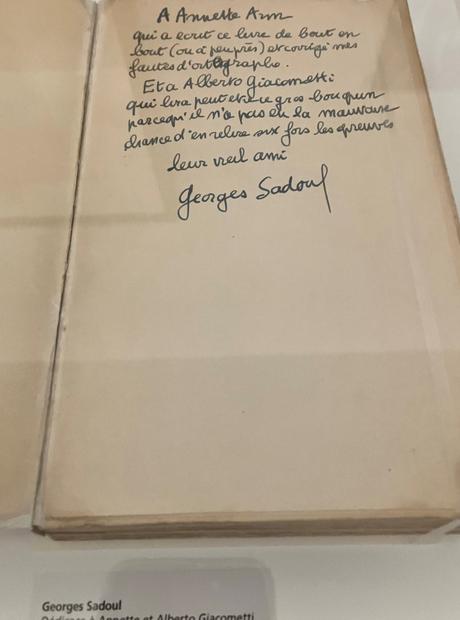 A Annette Arm
qui a écrit ce livre de bout en
bout (ou à peu près) et corrigé mes
fautes d'orthographe.
Et à Alberto Giacometti
qui lira peut être ce gros bouquin
parcequ'il n'a pas eu la mauvaise
chance d'en relire six fois les épreuves
leur vieil ami
Georges Sadoul
Georges Sadoul
Dédicace à Annette et Alberto Giacometti